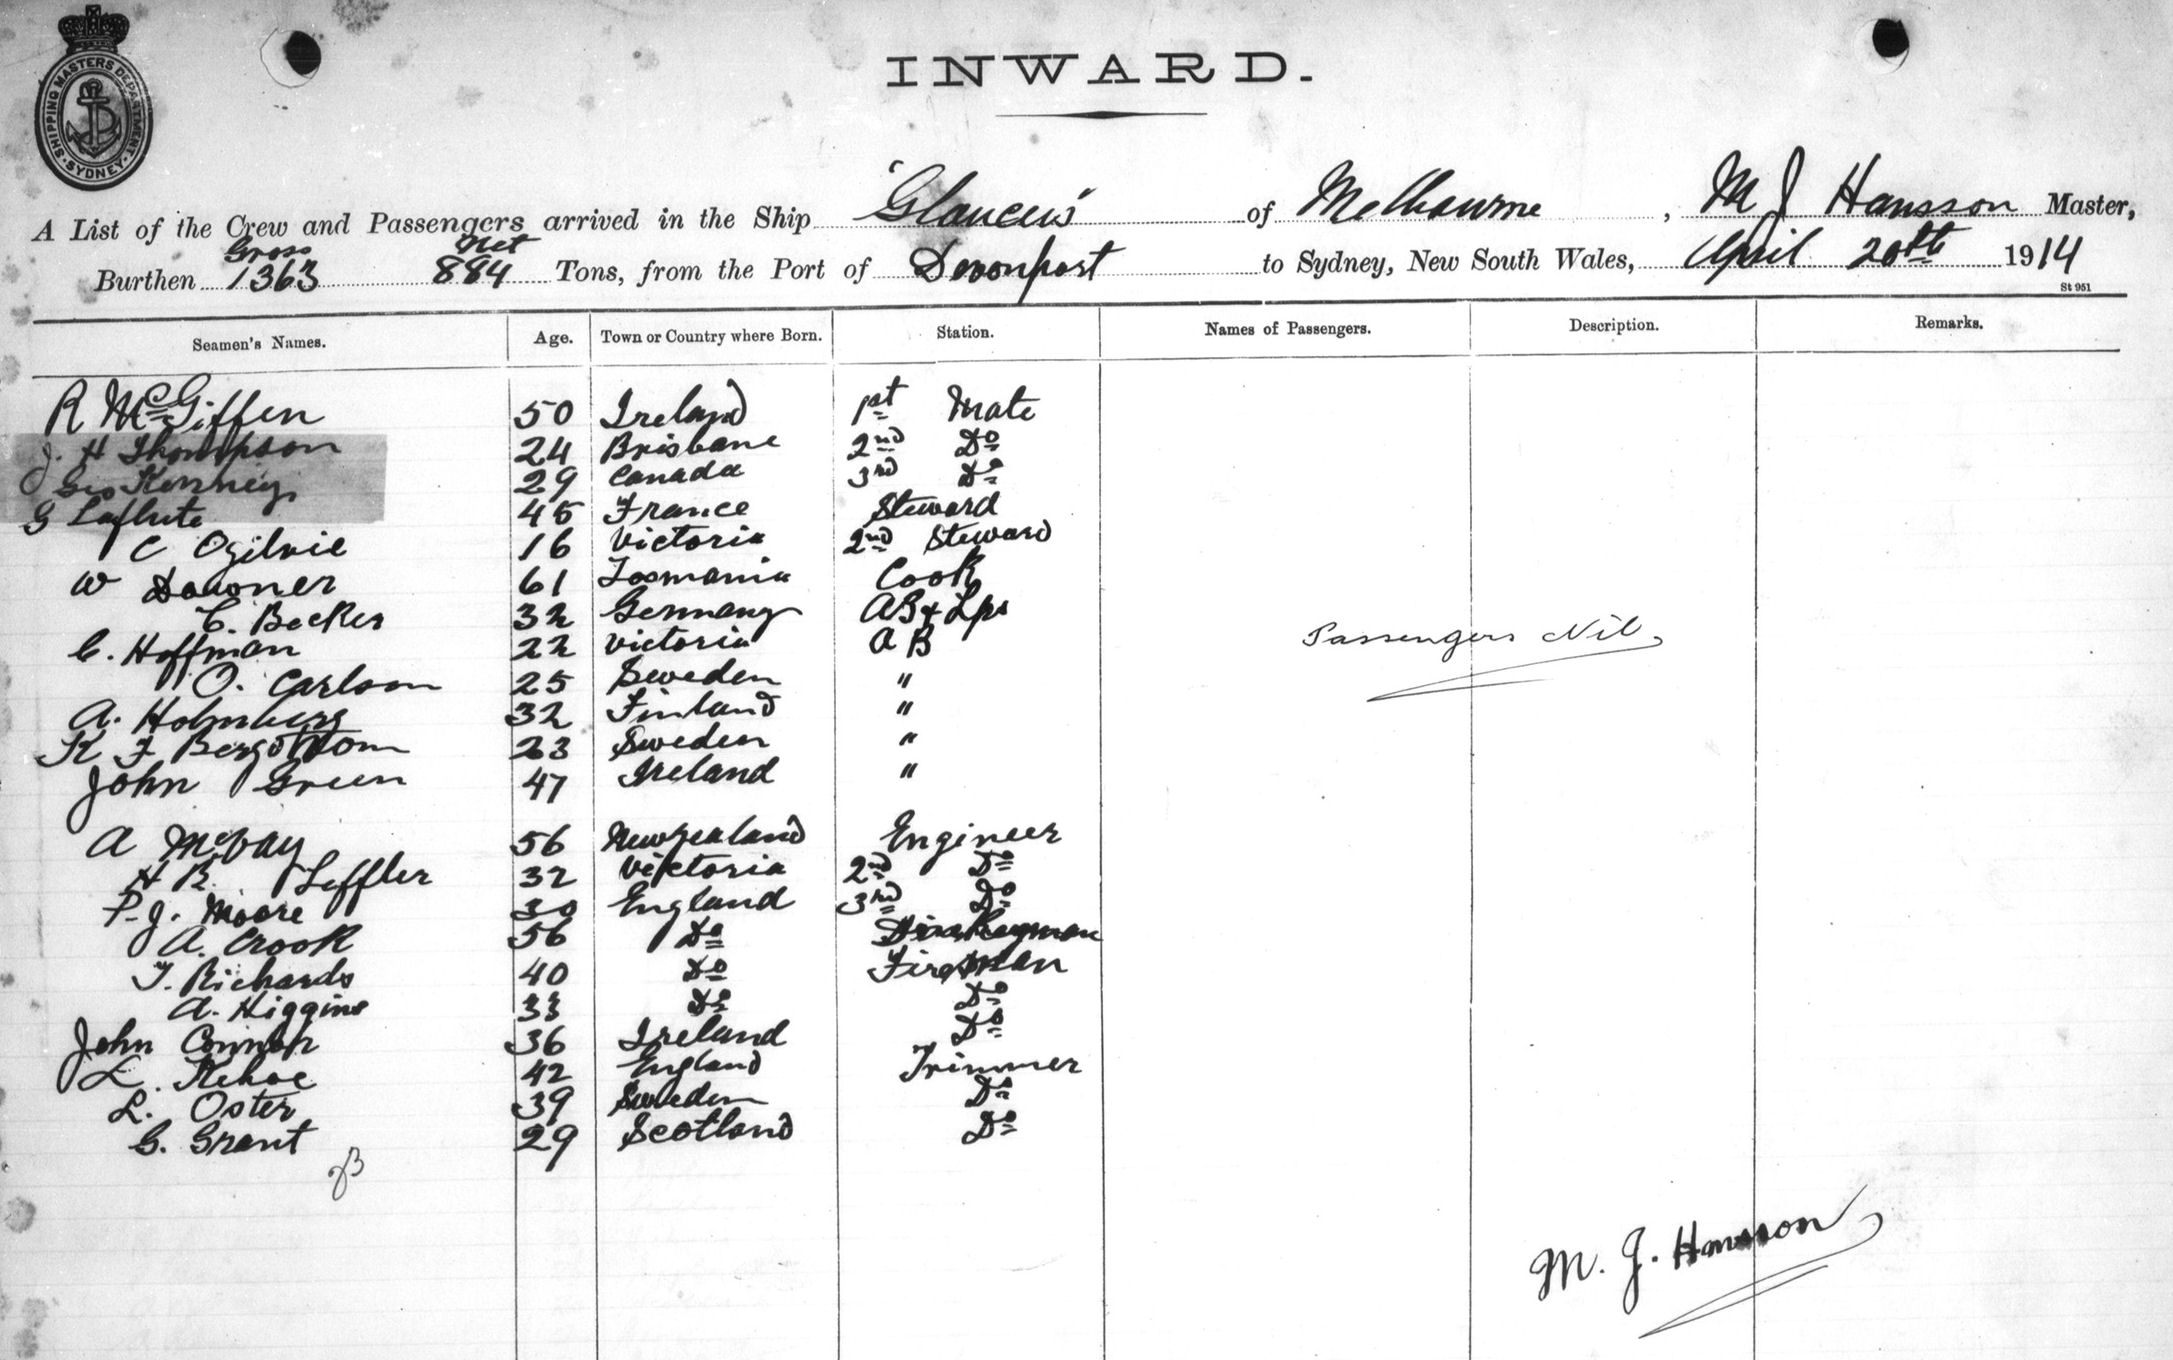 SHIPPING MASTERS DEPARTMENT · SYDNEY ·
INWARD.
A List of the Crew and Passengers arrived in the Ship "Glaucus" of Melbourne, M J Hansson Master,
Gross Net
Burthen 1363 884 Tons, from the Port of Devonport to Sydney, New South Wales, April 20th 1914
St 951
Seamen's Names. Age. Town or Country where Born. Station. Names of Passengers. Description. Remarks.
R McGiffen 50 Ireland 1st Mate
J. H Thompson 24 Brisbane 2nd Do
Geo Kenney 29 Canada 3rd Do
G 45 France Steward
C Ogilvie 16 Victoria 2nd Steward
W 61 Tasmania Cook
C. Becker 32 Germany AB & Lps
C. Hoffman 22 Victoria A B
Passengers Nil
O. Carlson 25 Sweden "
A. Holmberg 32 Finland "
K F Bergstrom 23 Sweden "
John Green 47 Ireland "
A McVay 56 New Zealand Engineer
H R. Leffler 32 Victoria 2nd Do
P. J. Moore 30 England 3rd Do
A. Crook 56 Do Donkeyman
T. Richards 40 Do Fireman
A. Higgins 33 Do Do
John Connor 36 Ireland Do
L. Kehoe 42 England Trimmer
L. Oster 39 Sweden Do
G. Grant 29 Scotland Do
M. J. Hansson